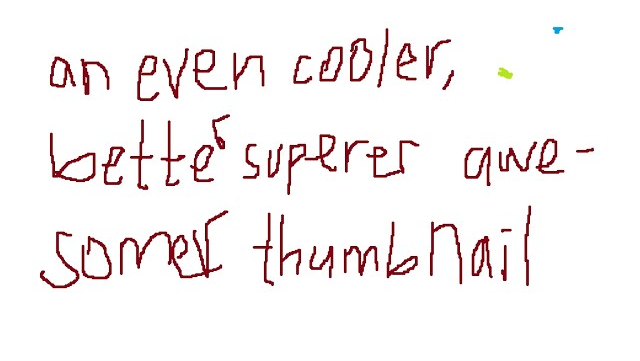 an even cooler,
better superer awe-
somer thumbnail